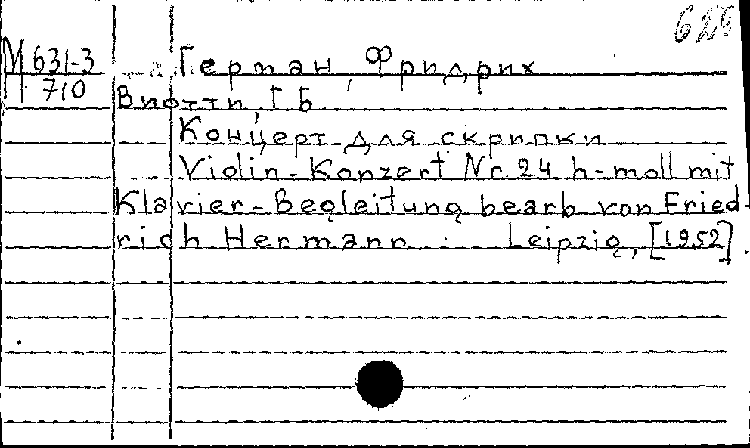 М 631-3
710
Герман, Фридрих
Виотти, Г Б
Концерт для скрипки
Violin-Konzert Nr. 24 h-moll mit
Klavier-Begleitung bearb von Fried-
rich Hermann. Leipzig, [1952].